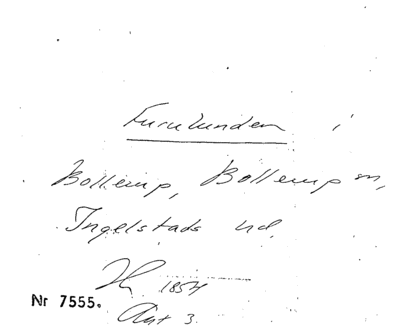 Furulunden i
Bollerup, Bollerup sn,
Ingelstads hd.
1854
Nr 7555.
Ant 3.